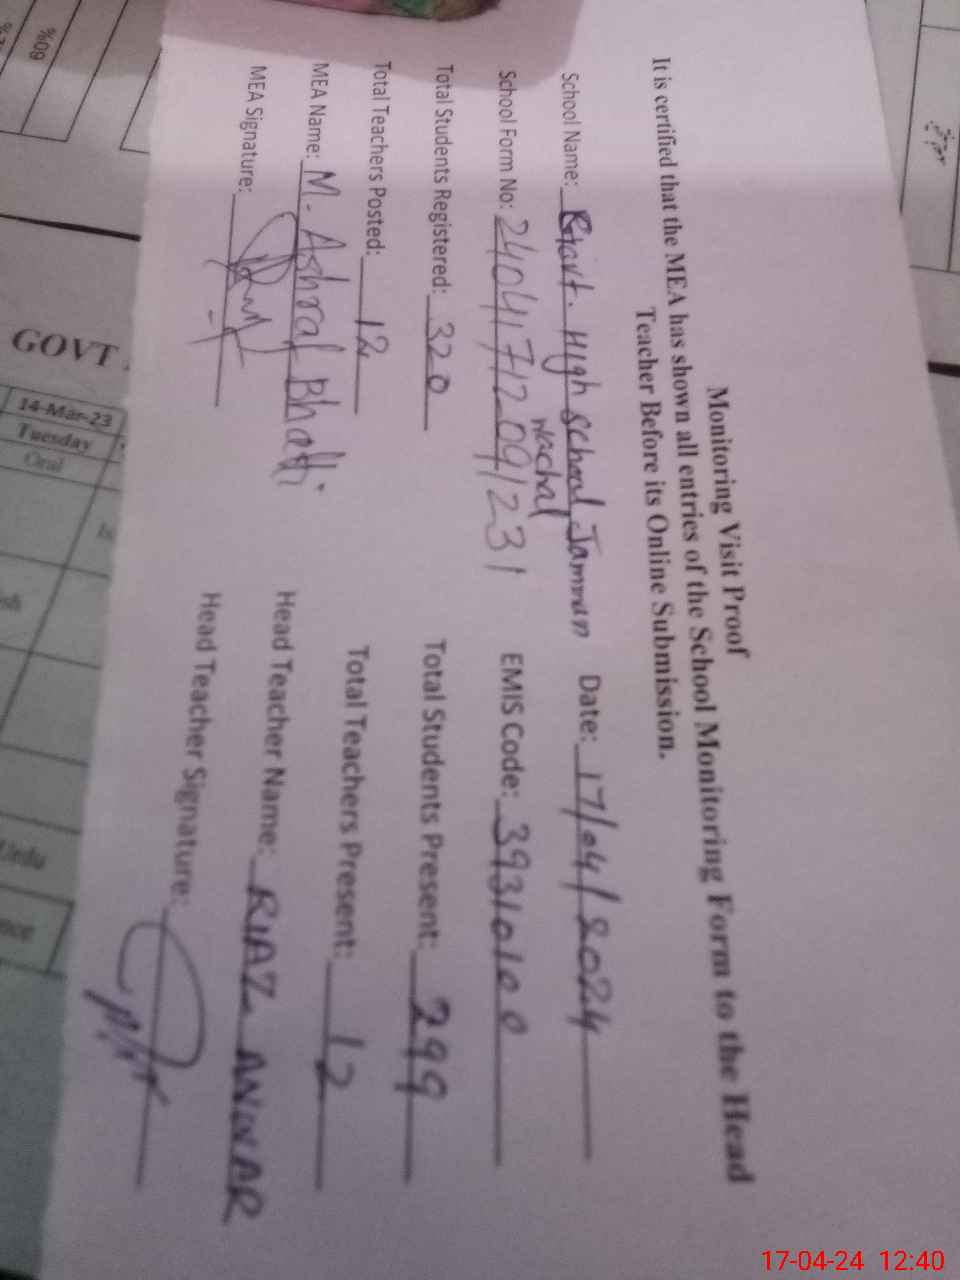 Monitoring Visit Proof
It is certified that the MEA has shown all entries of the School Monitoring Form to the Head
Teacher Before its Online Submission.
School Name: Govt. High School Jamman Date: 17/04/2024
wachal
School Form No: EMIS Code: 39310100
Total Students Registered: 320 Total Students Present: 299
Total Teachers Posted: 12 Total Teachers Present: 12
MEA Name: M. Ashraf Bhatti Head Teacher Name: RIAZ ANWAR
MEA Signature: Head Teacher Signature:
60%
GOVT
14-Mar-23
Tuesday
Oral
Urdu
17-04-24 12:40